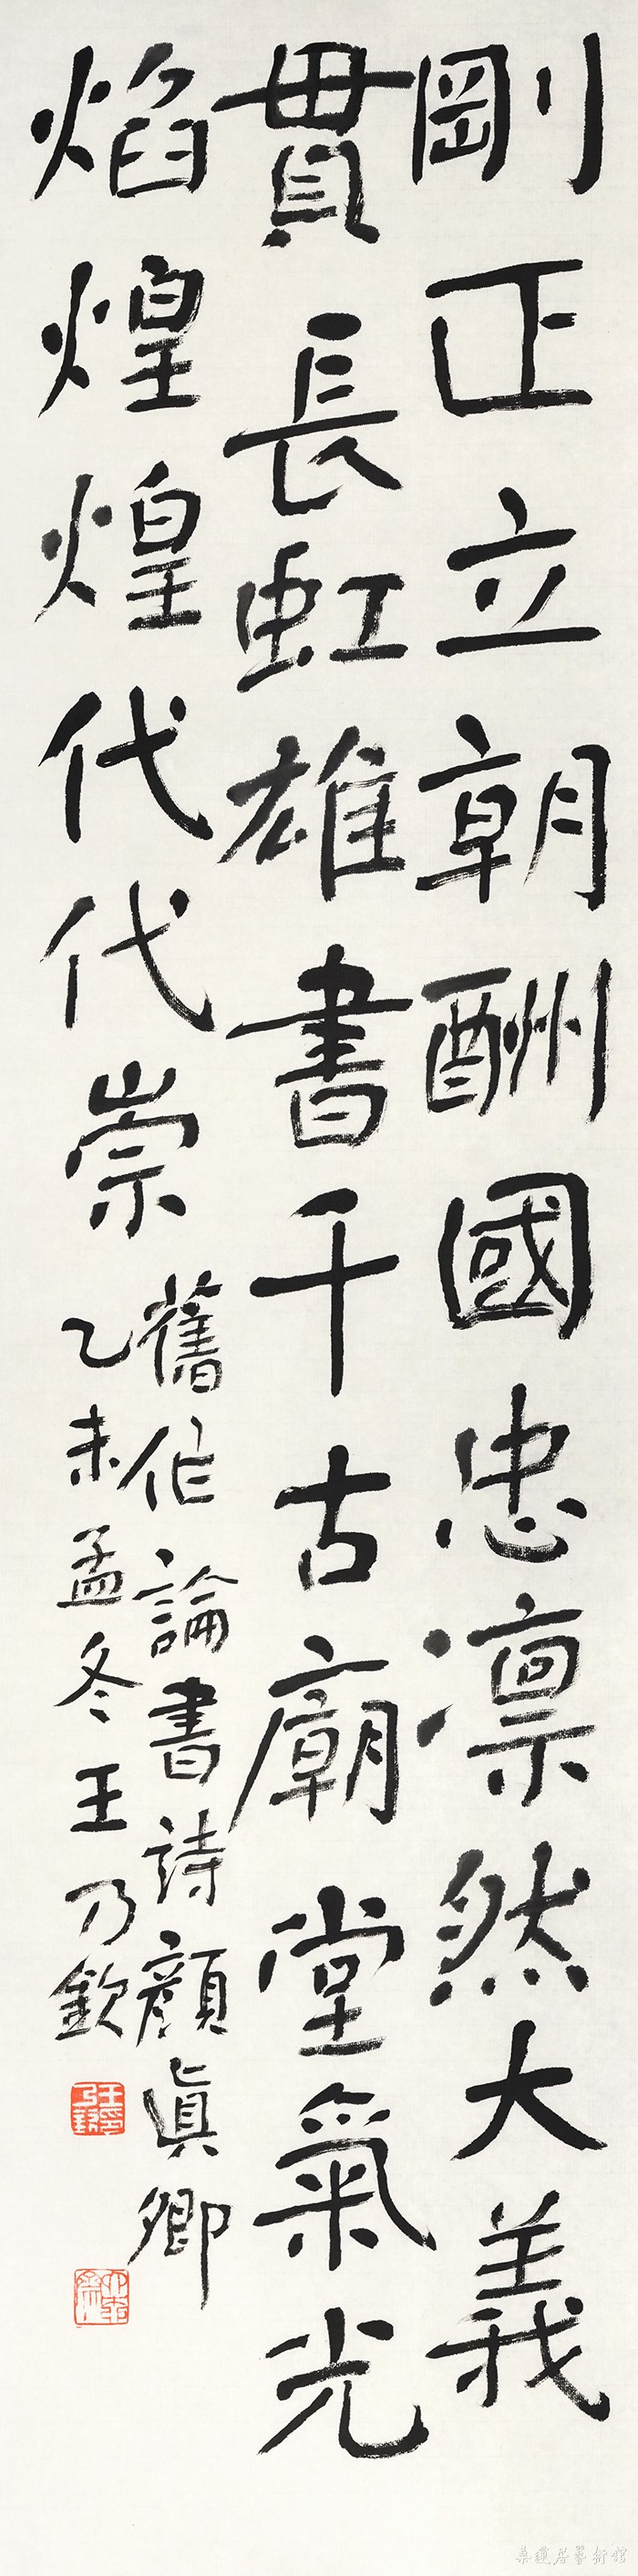 剛正立朝酬國忠凛然大義
貫長虹雄書千古廟堂氣光
焰煌煌代代崇
舊作論書詩顔眞卿
乙未孟冬王乃欽